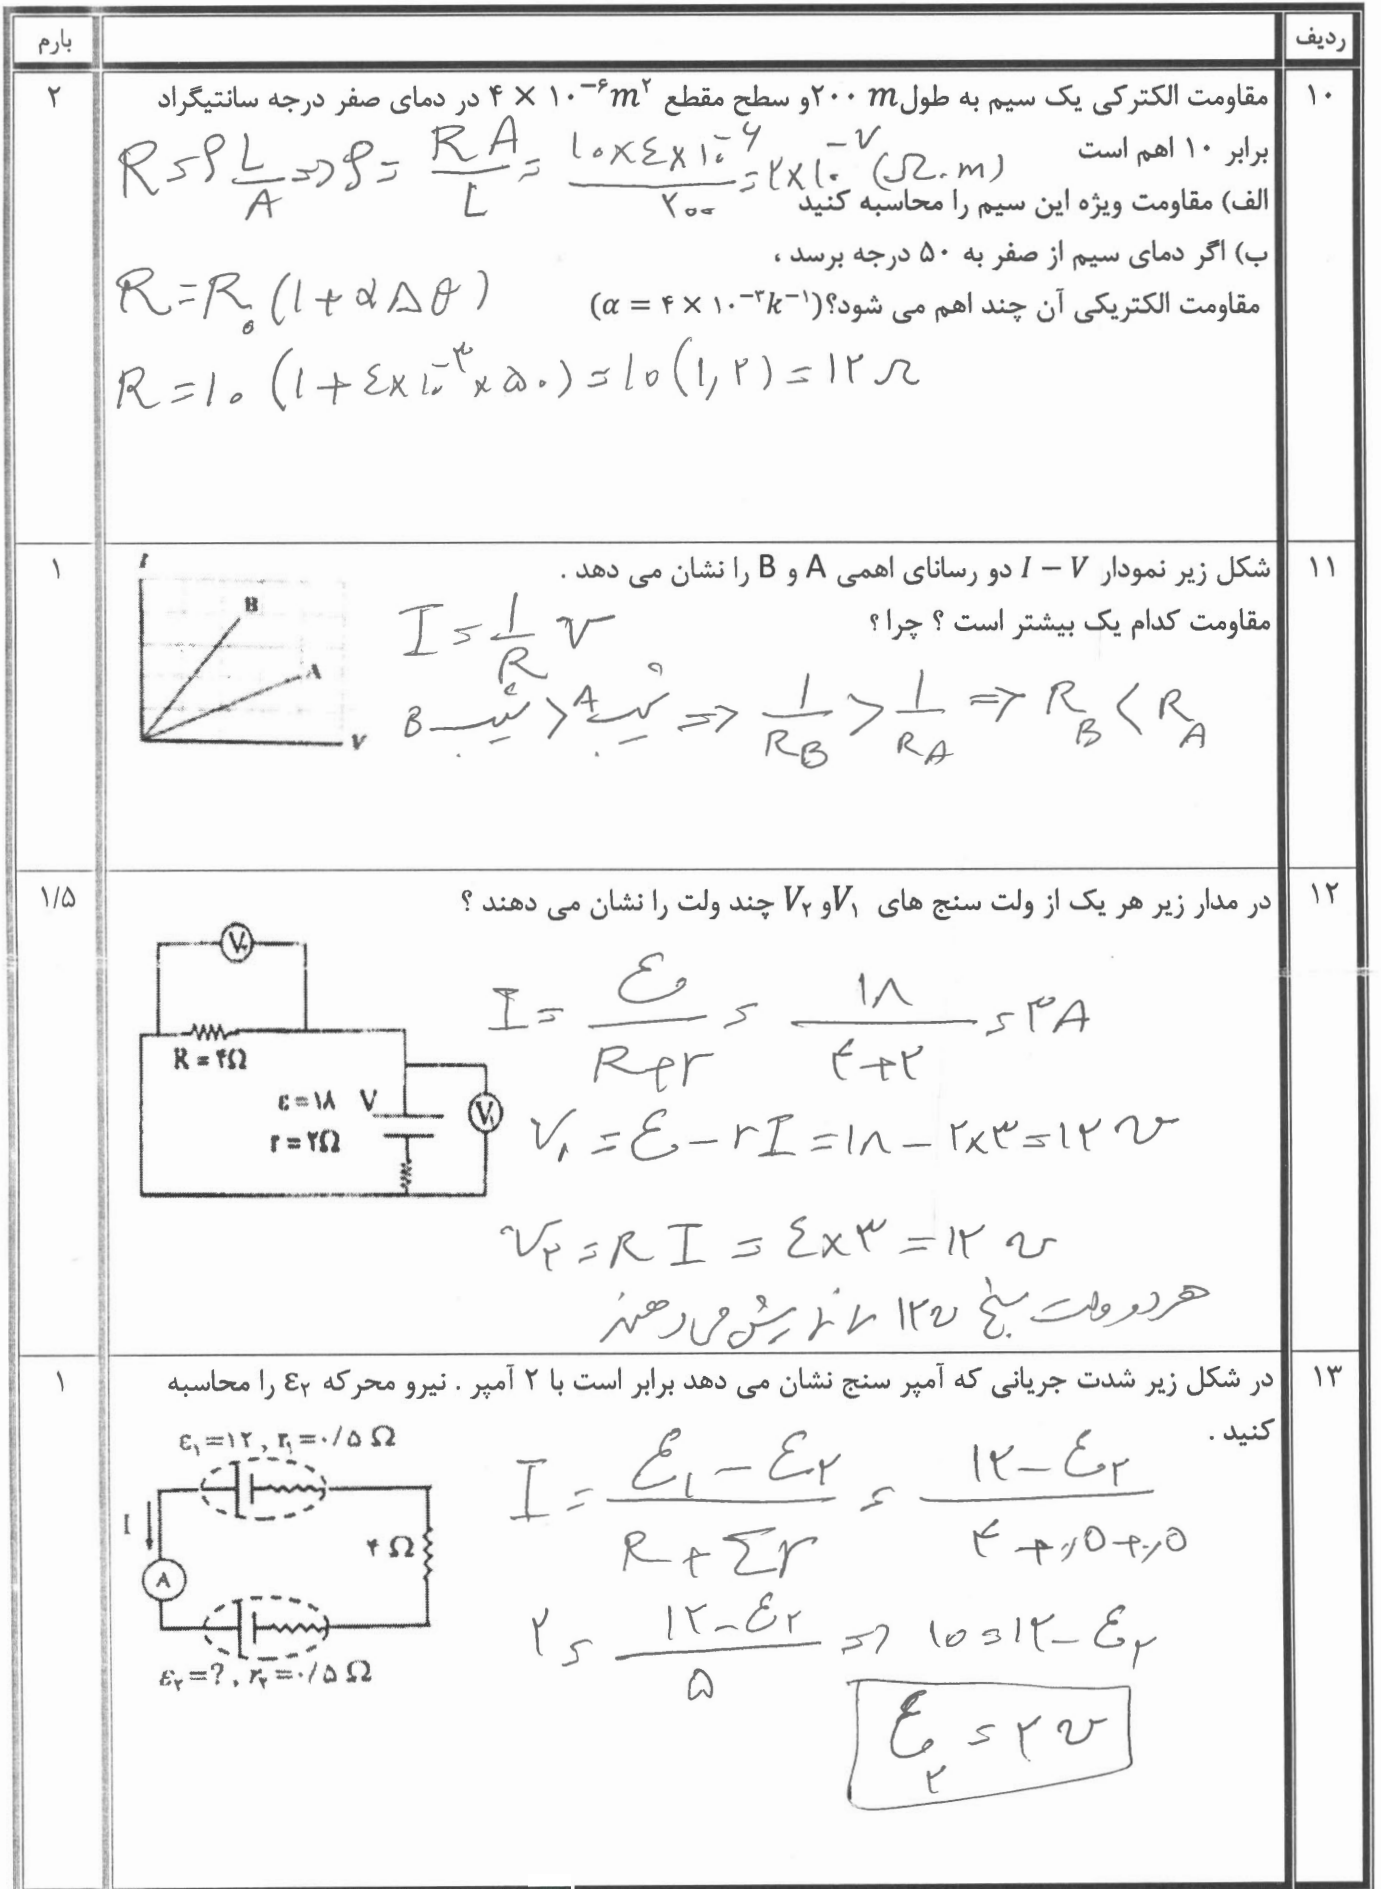 ردیف
بارم
۱۰
مقاومت الکترکی یک سیم به طول ۲۰۰ m و سطح مقطع ۴ × ۱۰⁻⁶m² در دمای صفر درجه سانتیگراد
۲
برابر ۱۰ اهم است
R = ρ L/A ⇒ ρ = RA/L = ۱۰×۴×۱۰⁻⁶/۲۰۰ = ۲×۱۰⁻⁷ (Ω.m)
الف) مقاومت ویژه این سیم را محاسبه کنید
ب) اگر دمای سیم از صفر به ۵۰ درجه برسد ،
مقاومت الکتریکی آن چند اهم می شود؟(α = ۴ × ۱۰⁻³k⁻¹)
R = R₀ (۱ + αΔθ)
R = ۱۰ (۱ + ۴×۱۰⁻³ × ۵۰) = ۱۰ (۱,۲) = ۱۲ Ω
۱۱
شکل زیر نمودار I – V دو رسانای اهمی A و B را نشان می دهد .
۱
مقاومت کدام یک بیشتر است ؟ چرا ؟
I
B
A
V
I = ۱/R V
شیب B > شیب A ⇒ ۱/R_B > ۱/R_A ⇒ R_B < R_A
۱۲
در مدار زیر هر یک از ولت سنج های V₁ و V₂ چند ولت را نشان می دهند ؟
۱/۵
V₂
R = ۴Ω
ε = ۱۸ V
r = ۲Ω
V₁
I = ε/R+r = ۱۸/۴+۲ = ۳A
V₁ = ε – rI = ۱۸ – ۲×۳ = ۱۲ V
V₂ = RI = ۴×۳ = ۱۲ V
هر دو ولت سنج ۱۲V را نمایش می دهند
۱۳
در شکل زیر شدت جریانی که آمپر سنج نشان می دهد برابر است با ۲ آمپر . نیرو محرکه ε₂ را محاسبه
۱
کنید .
ε₁=۱۲ , r₁=۰/۵ Ω
I
A
۴ Ω
ε₂=? , r₂=۰/۵ Ω
I = ε₁ – ε₂/R + Σr = ۱۲ – ε₂/۴ + ۰,۵ + ۰,۵
۲ = ۱۲ – ε₂/۵ ⇒ ۱۰ = ۱۲ – ε₂
ε₂ = ۲ V